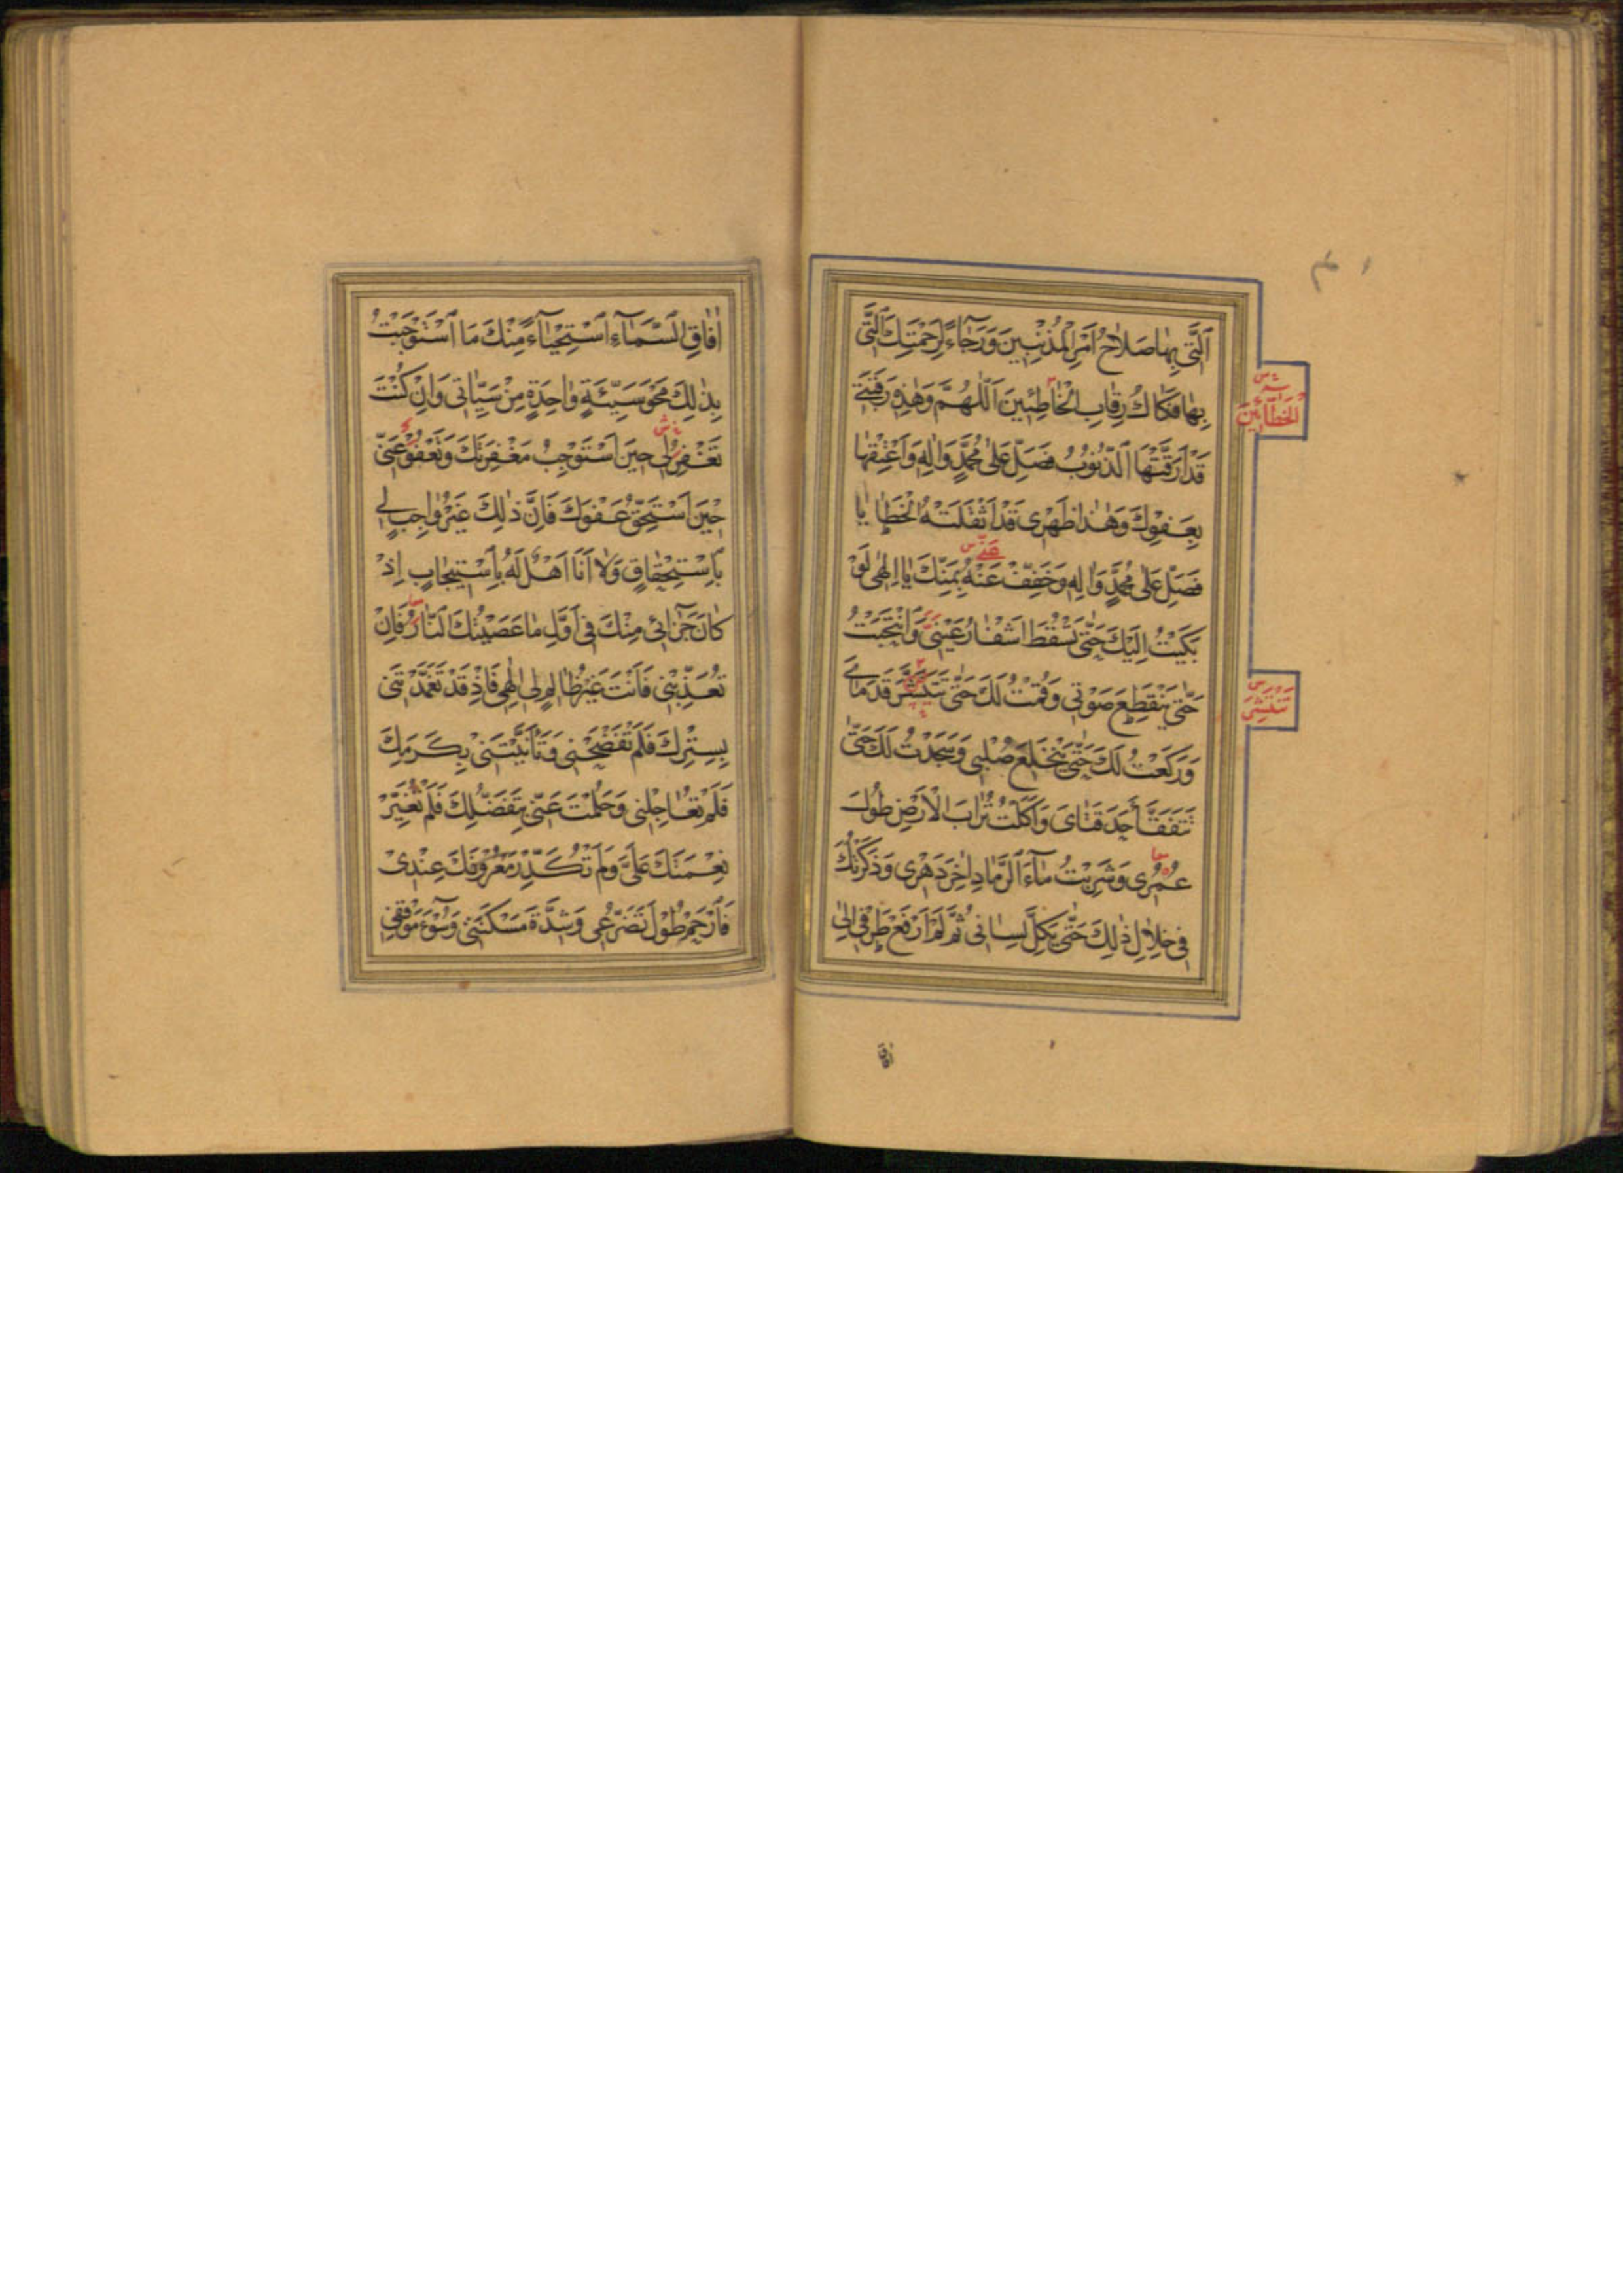 اَلَّتي بِهٰا صَلاٰحُ اَمْرِ الْمُذْنِبينَ وَرَجٰاءً لِرَحْمَتِكَ اَلَّتي
بِهٰا فَكٰاكُ رِقٰابِ الْخٰاطِئينَ اَللّٰهُمَّ وَهٰذِهِ رَقَبَتي
قَدْ اَرَقَّتْهَا الذُّنُوبُ فَصَلِّ عَلىٰ مُحَمَّدٍ وَاٰلِهِ وَاَعْتِقْهٰا
بِعَفْوِكَ وَهٰذٰا ظَهْري قَدْ اَثْقَلَتْهُ الْخَطٰايٰا
فَصَلِّ عَلىٰ مُحَمَّدٍ وَاٰلِهِ وَخَفِّفْ عَنْهُ بِمَنِّكَ يٰا اِلٰهي لَوْ
بَكَيْتُ اِلَيْكَ حَتّىٰ تَسْقُطَ اَشْفٰارُ عَيْنَيَّ وَانْتَحَبْتُ
حَتّىٰ يَنْقَطِعَ صَوْتي وَقُمْتُ لَكَ حَتّىٰ تَتَنَشَّرَ قَدَمٰايَ
وَرَكَعْتُ لَكَ حَتّىٰ يَنْخَلِعَ صُلْبي وَسَجَدْتُ لَكَ حَتّىٰ
تَتَفَقَّأَ حَدَقَتٰايَ وَاَكَلْتُ تُرٰابَ الْاَرْضِ طُولَ
عُمُري وَشَرِبْتُ مٰاءَ الرَّمٰادِ اٰخِرَ دَهْري وَذَكَرْتُكَ
في خِلاٰلِ ذٰلِكَ حَتّىٰ يَكِلَّ لِسٰاني ثُمَّ لَمْ اَرْفَعْ طَرْفي اِلىٰ
الْخَطّٰائينَ
تَنْتَشِرَ
اٰفاق
اٰفٰاقِ السَّمٰاءِ اسْتِحْيٰاءً مِنْكَ مَا اسْتَوْجَبْتُ
بِذٰلِكَ مَحْوَ سَيِّئَةٍ وٰاحِدَةٍ مِنْ سَيِّئٰاتي وَاِنْ كُنْتَ
تَغْفِرُ لي حينَ اَسْتَوْجِبُ مَغْفِرَتَكَ وَتَعْفُو عَنّي
حينَ اَسْتَحِقُّ عَفْوَكَ فَاِنَّ ذٰلِكَ غَيْرُ وٰاجِبٍ لي
بِاسْتِحْقٰاقٍ وَلاٰ اَنَا اَهْلٌ لَهُ بِاسْتيجٰابٍ اِذْ
كٰانَ جَزٰائي مِنْكَ في اَوَّلِ مٰا عَصَيْتُكَ النّٰارُ فَاِنْ
تُعَذِّبْني فَاَنْتَ غَيْرُ ظٰالِمٍ لي اِلٰهي فَاِذْ قَدْ تَغَمَّدْتَني
بِسِتْرِكَ فَلَمْ تَفْضَحْني وَتَاَنَّيْتَني بِكَرَمِكَ
فَلَمْ تُعٰاجِلْني وَحَلُمْتَ عَنّي بِتَفَضُّلِكَ فَلَمْ تُغَيِّرْ
نِعْمَتَكَ عَلَيَّ وَلَمْ تُكَدِّرْ مَعْرُوفَكَ عِنْدي
فَارْحَمْ طُولَ تَضَرُّعي وَشِدَّةَ مَسْكَنَتي وَسُوءَ مَوْقِفي